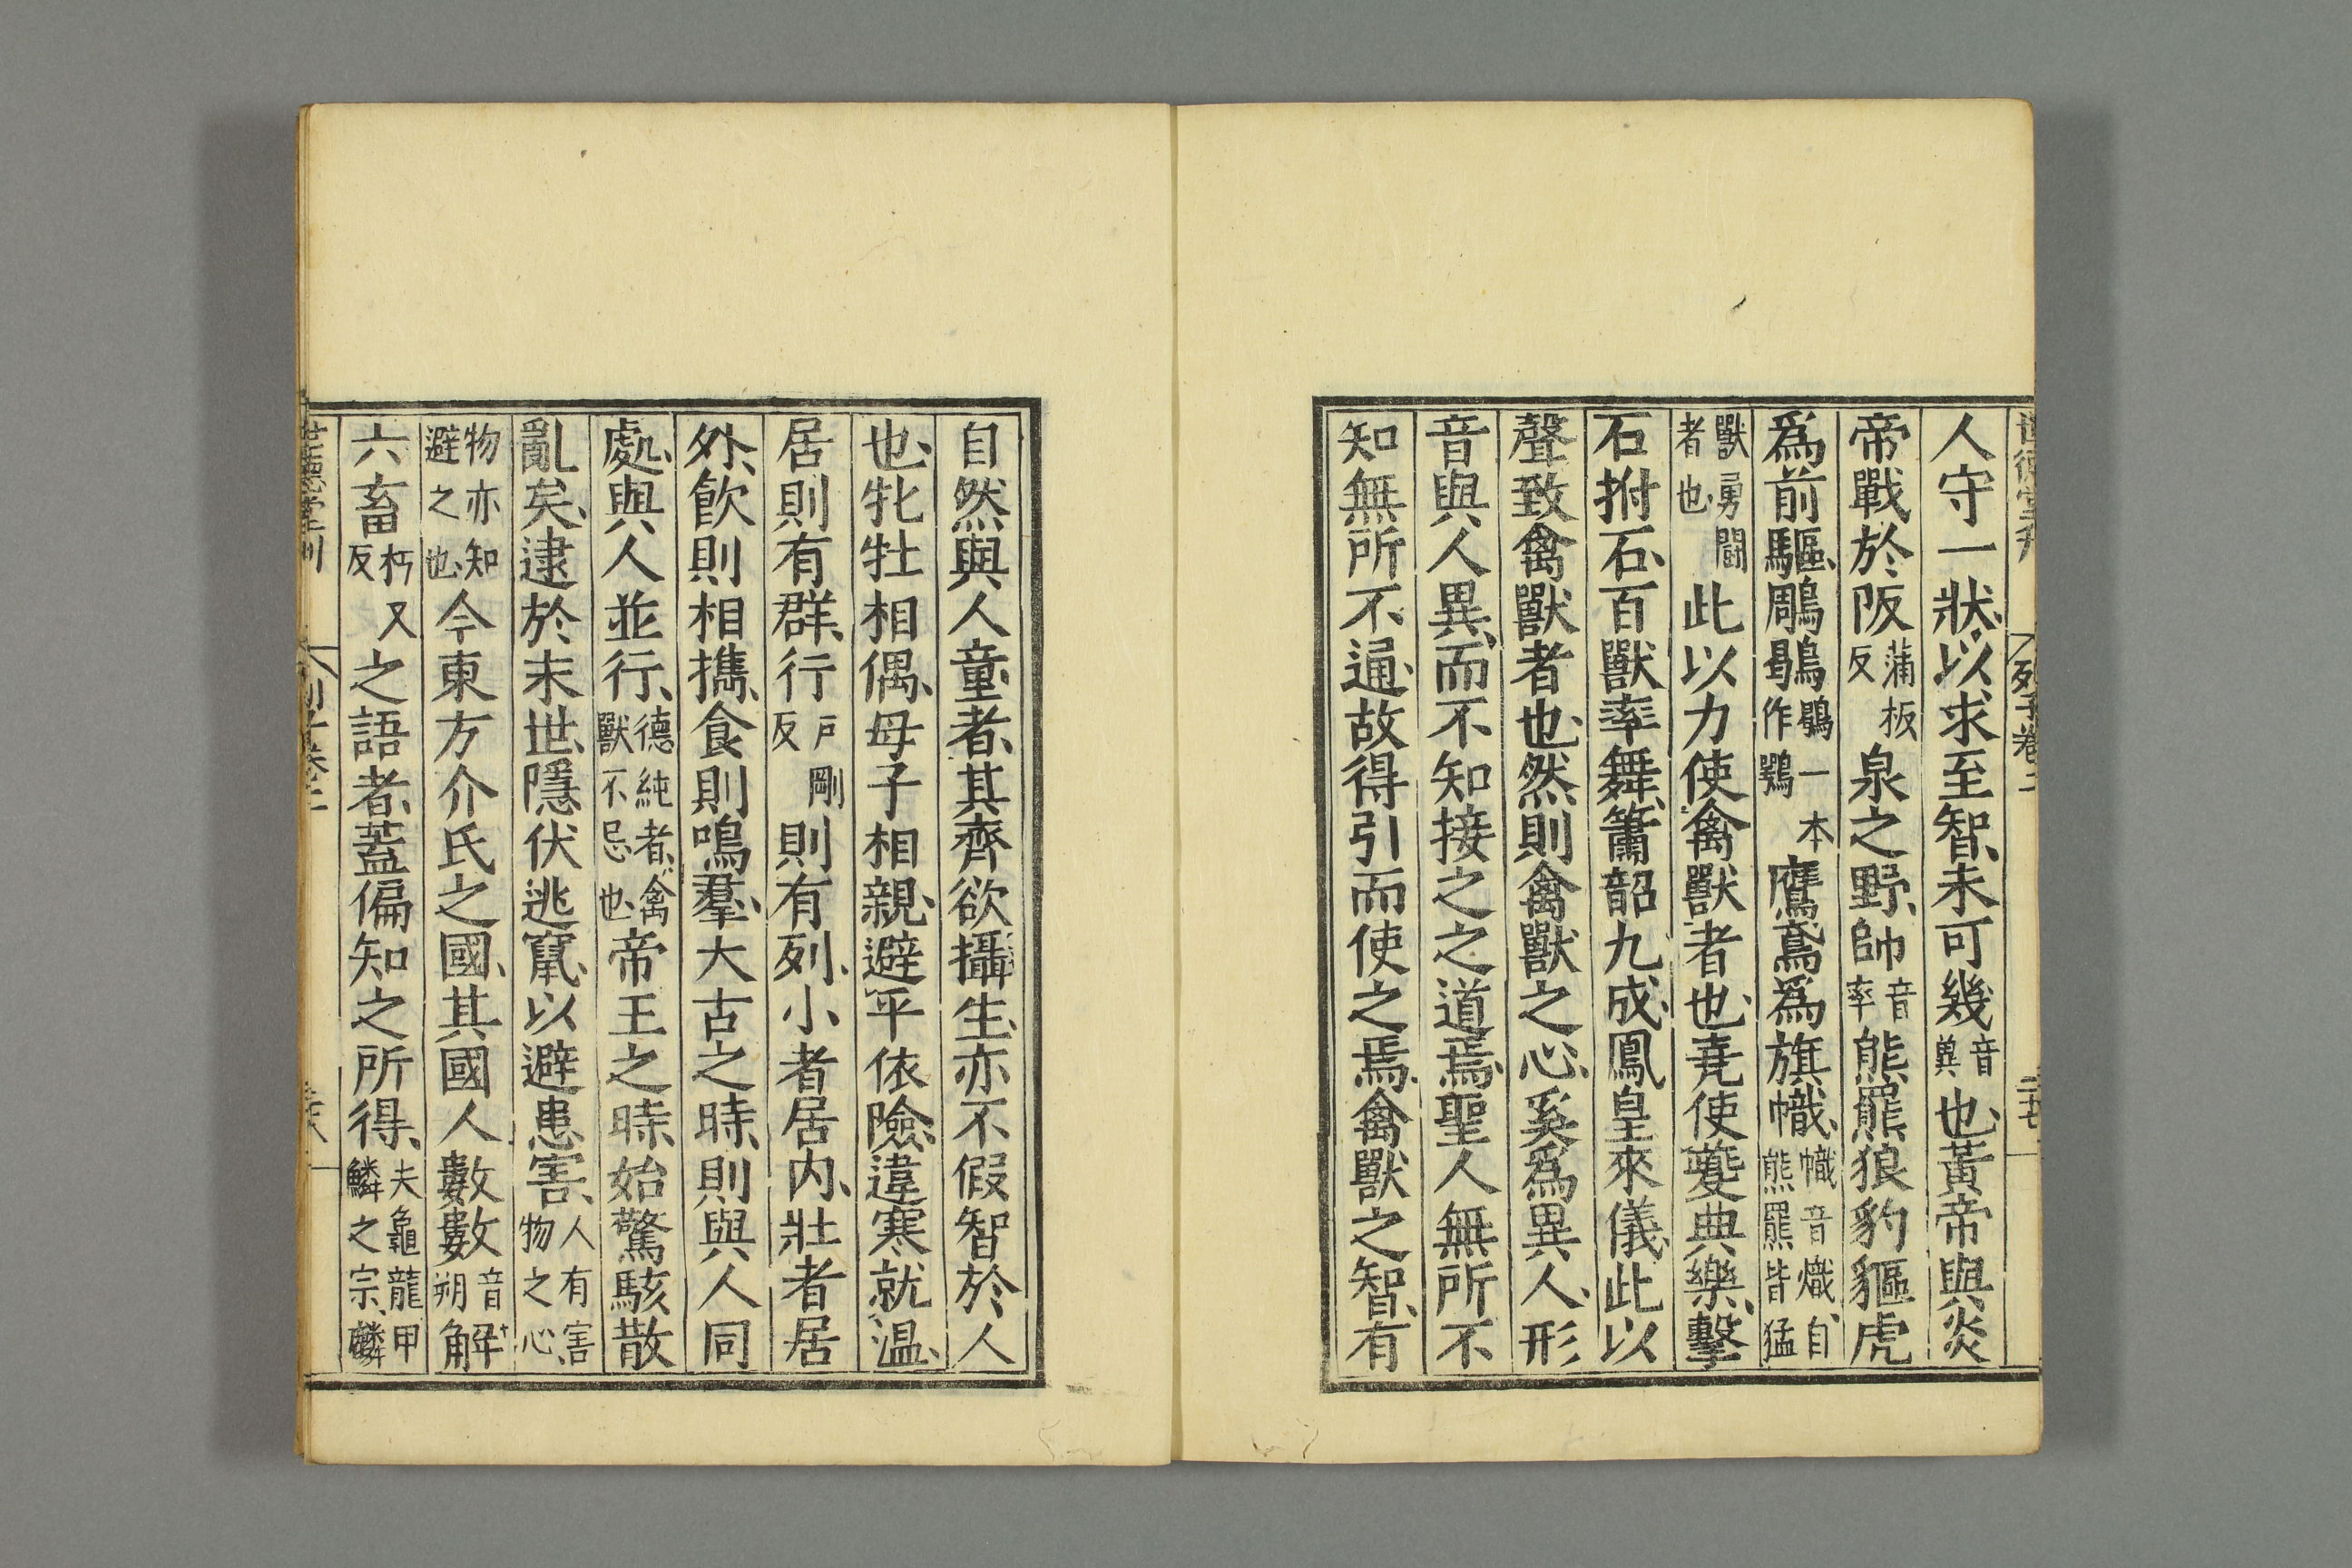 列子卷二
人守一狀、以求至智、未可幾音冀也、黃帝與炎
帝戰於阪蒲板反泉之野、帥音率熊羆狼豹貙虎
爲前驅、鵰鶡鶡一本作鶚鷹鳶爲旗幟、幟音熾、自熊羆皆猛
獸勇鬪者也、此以力使禽獸者也、堯使夔典樂、擊
石拊石、百獸率舞、簫韶九成、鳳皇來儀、此以
聲致禽獸者也、然則禽獸之心、奚爲異人、形
音與人異、而不知接之之道焉、聖人無所不
知無所不通、故得引而使之焉、禽獸之智、有
自然與人童者、其齊欲攝生、亦不假智於人
也、牝牡相偶、母子相親、避平依險、違寒就溫、
居則有群、行戶剛反則有列、小者居內、壯者居
外、飮則相㩗、食則鳴羣、大古之時、則與人同
處、與人並行、德純者、禽獸不忌也、帝王之時、始驚駭散
亂矣、逮於末世、隱伏逃竄、以避患害、人有害物之心、
物亦知避之也、今東方介氏之國、其國人數數音朔解
六畜朽又反之語者、蓋偏知之所得、夫龜龍甲鱗之宗、麟